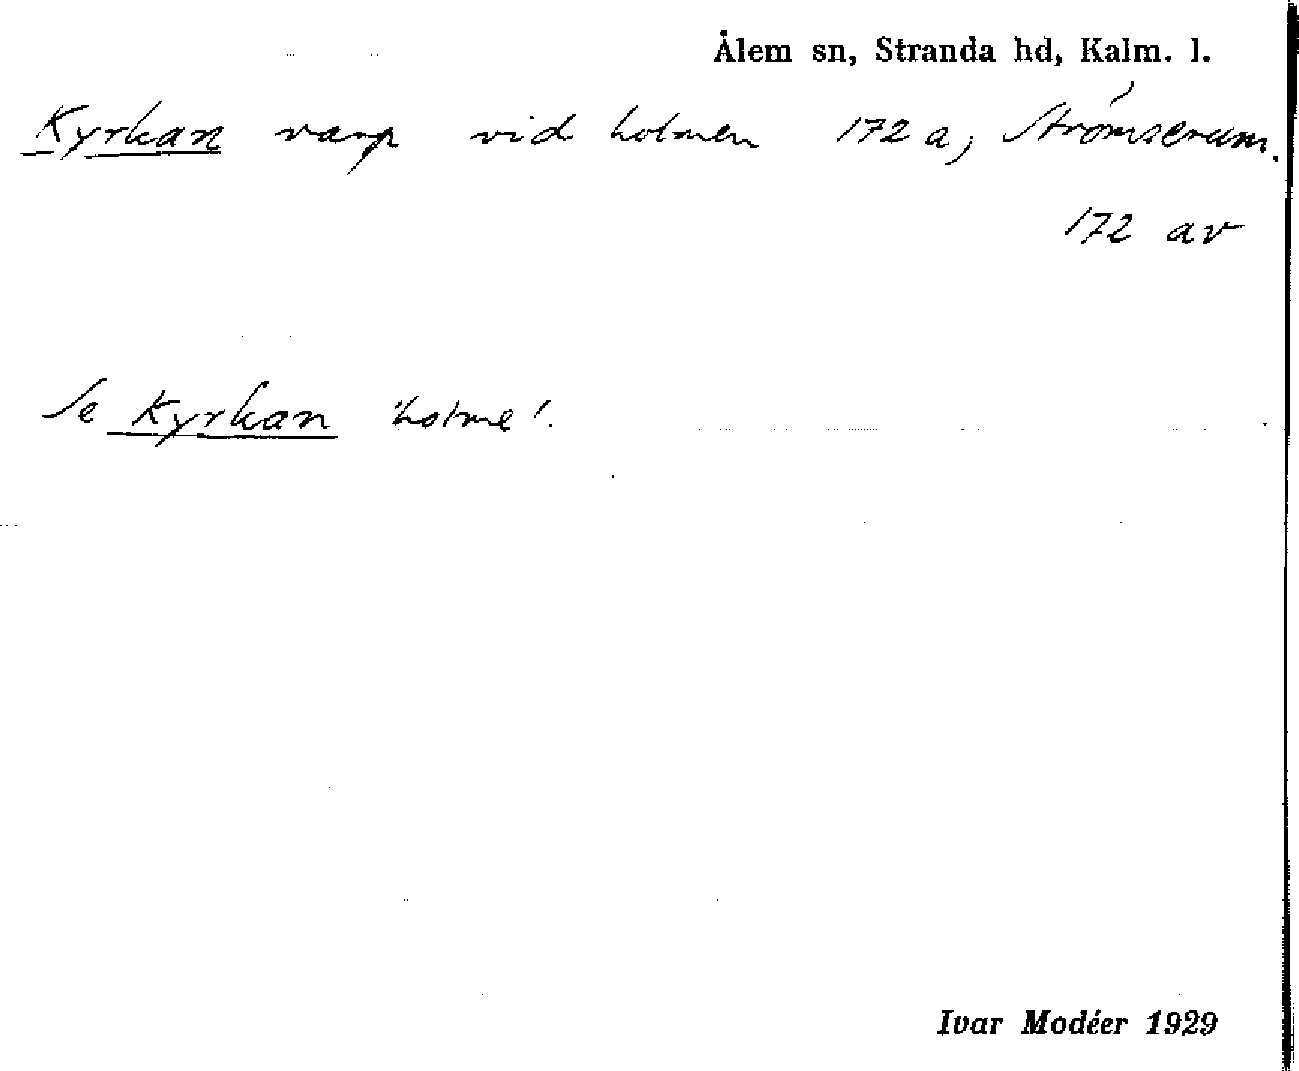 Ålem sn, Stranda hd, Kalm. l.
Kyrkan varp vid holmen 172 a, Strömserum.
172 av
Se Kyrkan holme!
Ivar Modéer 1929